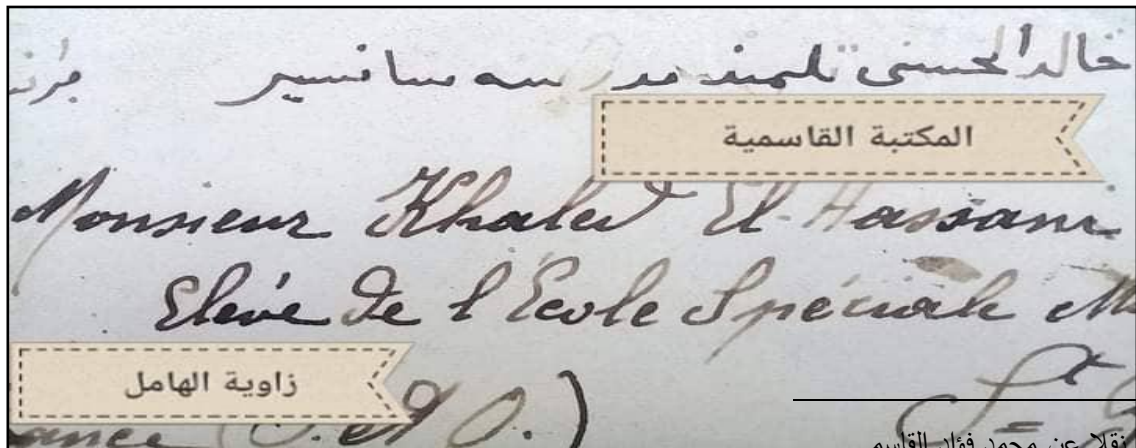 خالد الحسني تلميذ مدرسه سانسير
المكتبة القاسمية
Monsieur Khaled El-Hassani
Elève de l'Ecole Spéciale
زاوية الهامل
(S. et O.) St
نقلا عن محمد فؤاد القاسمي